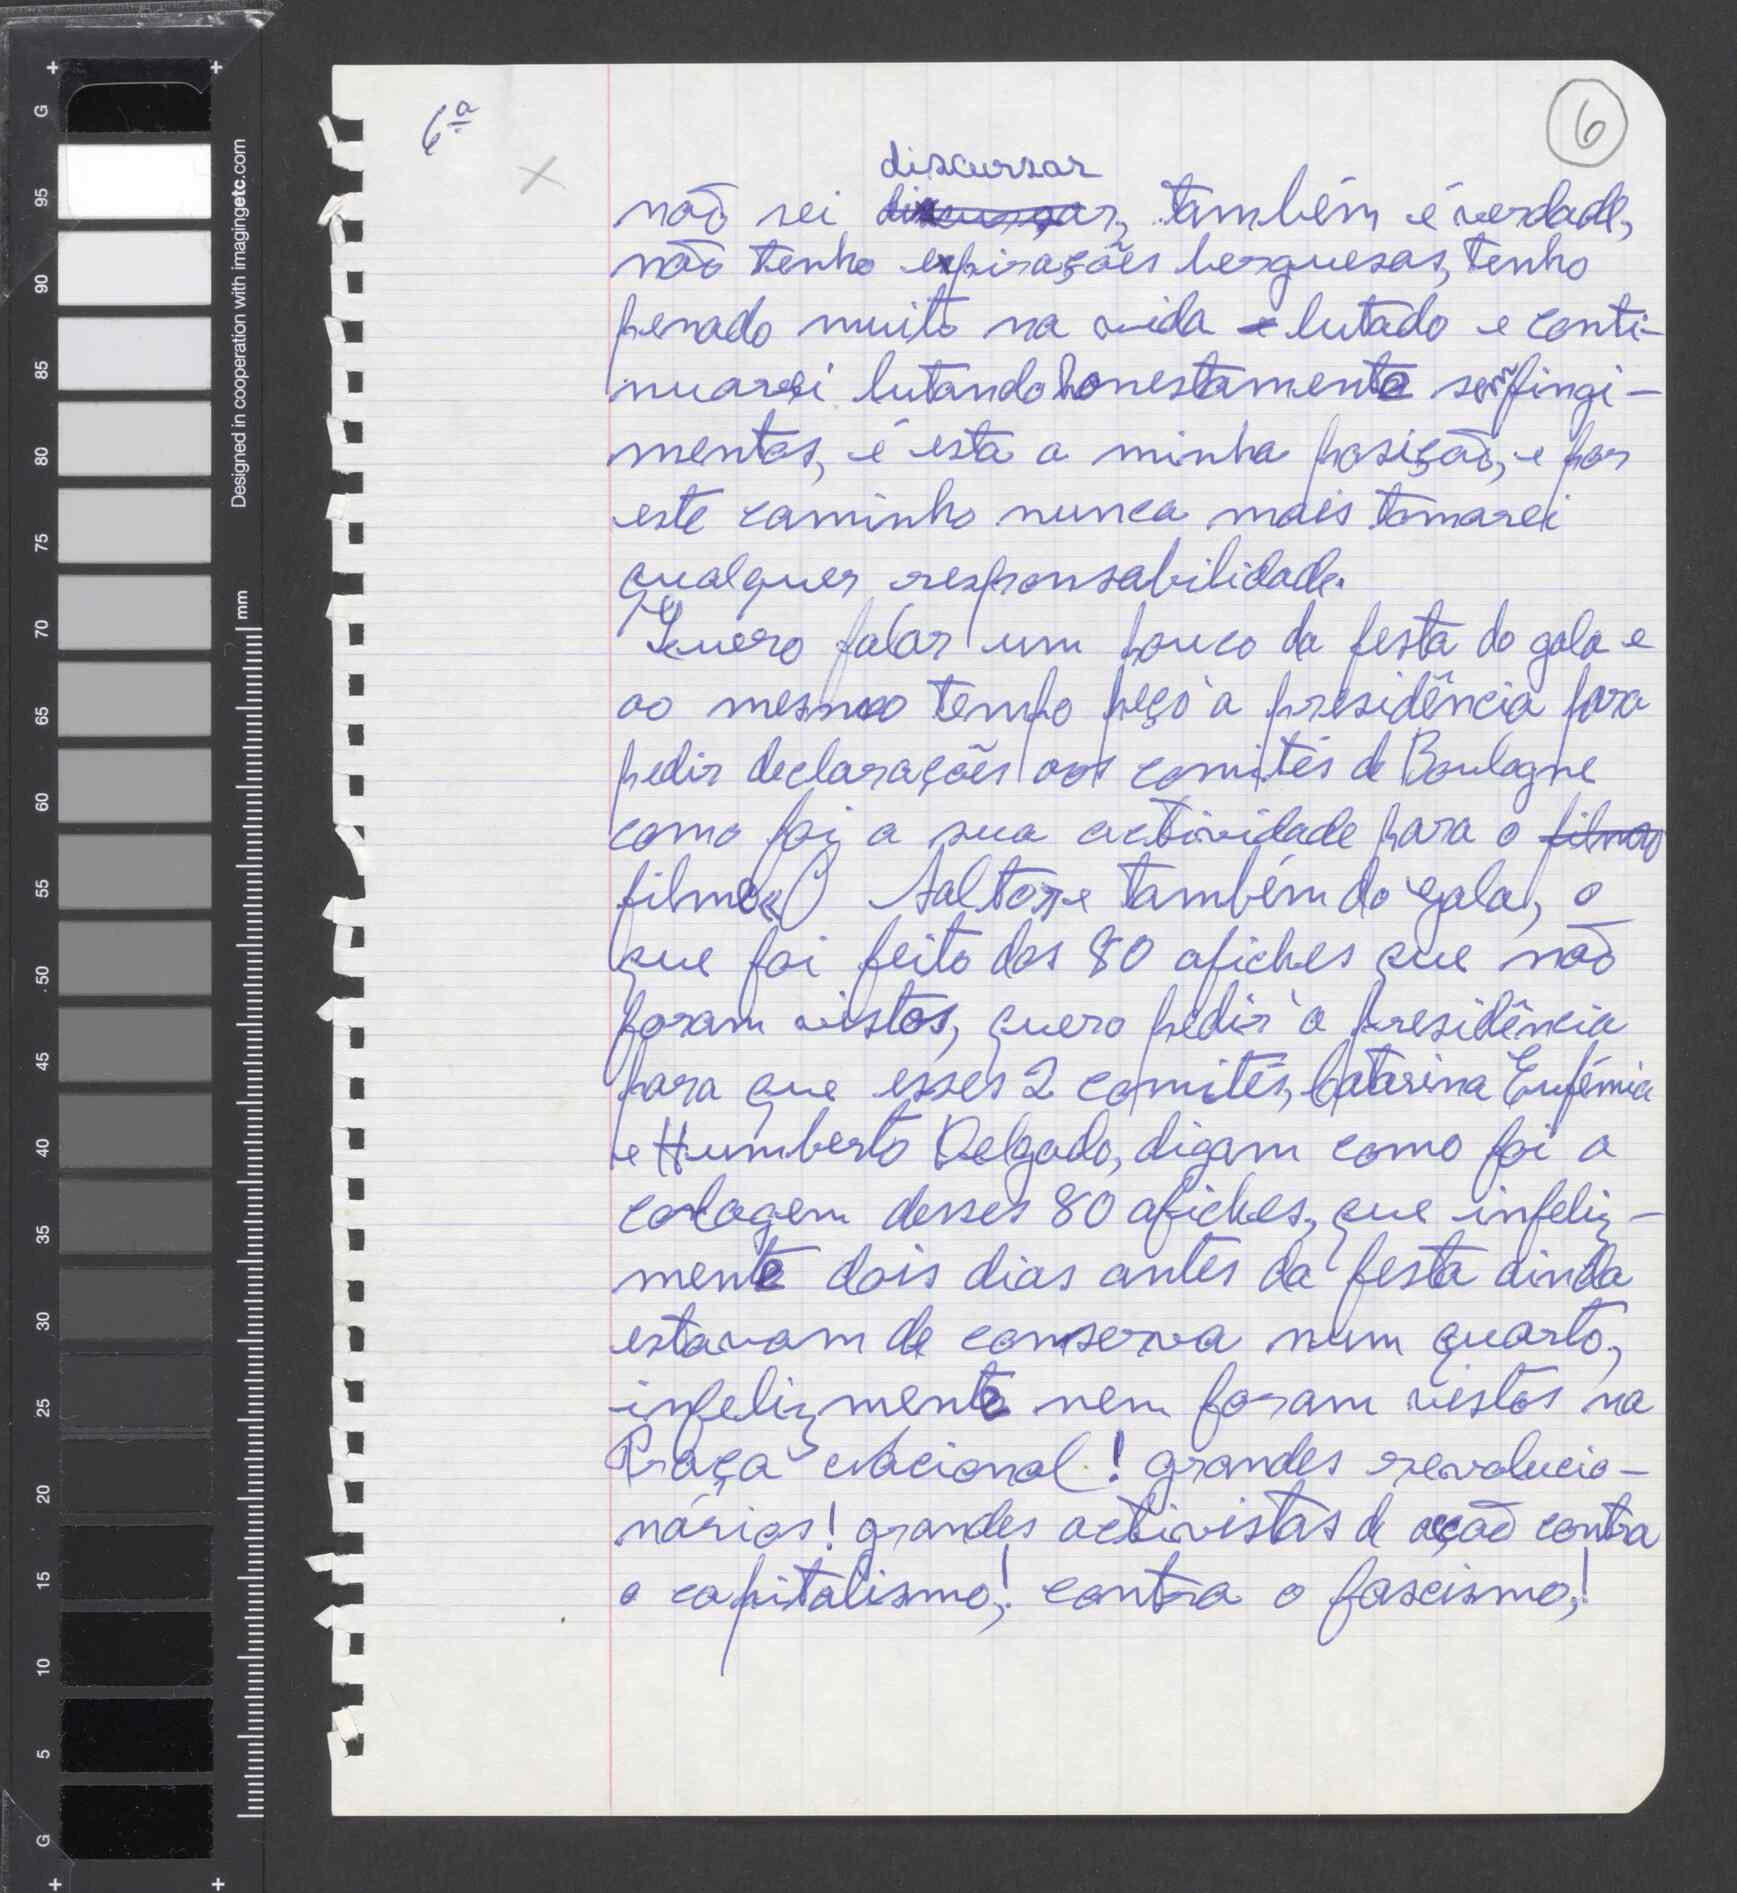 6ª
6
discursar
não sei discursar, também é verdade,
não tenho expirações burguesas, tenho
penado muito na vida e lutado e conti-
nuarei lutando honestamente sem fingi-
mentos, é esta a minha posição, e por
este caminho nunca mais tomarei
qualquer responsabilidade.
Quero falar um pouco da festa do gala e
ao mesmo tempo peço à presidência para
pedir declarações aos comités de Boulogne
como foi a sua actividade para o filmo
filme «O Salto» e também do gala, o
que foi feito dos 80 afiches que não
foram vistos, quero pedir à presidência
para que esses 2 comités, Catarina Eufémia
e Humberto Delgado, digam como foi a
colagem desses 80 afiches, que infeliz-
mente dois dias antes da festa ainda
estavam de conserva num quarto,
infelizmente nem foram vistos na
Praça Nacional! grandes revolucio-
nários! grandes activistas de acção contra
o capitalismo,! contra o fascismo,!
Designed in cooperation with imagingetc.com
mm
G
95
90
85
80
75
70
65
60
55
50
45
40
35
30
25
20
15
10
5
G